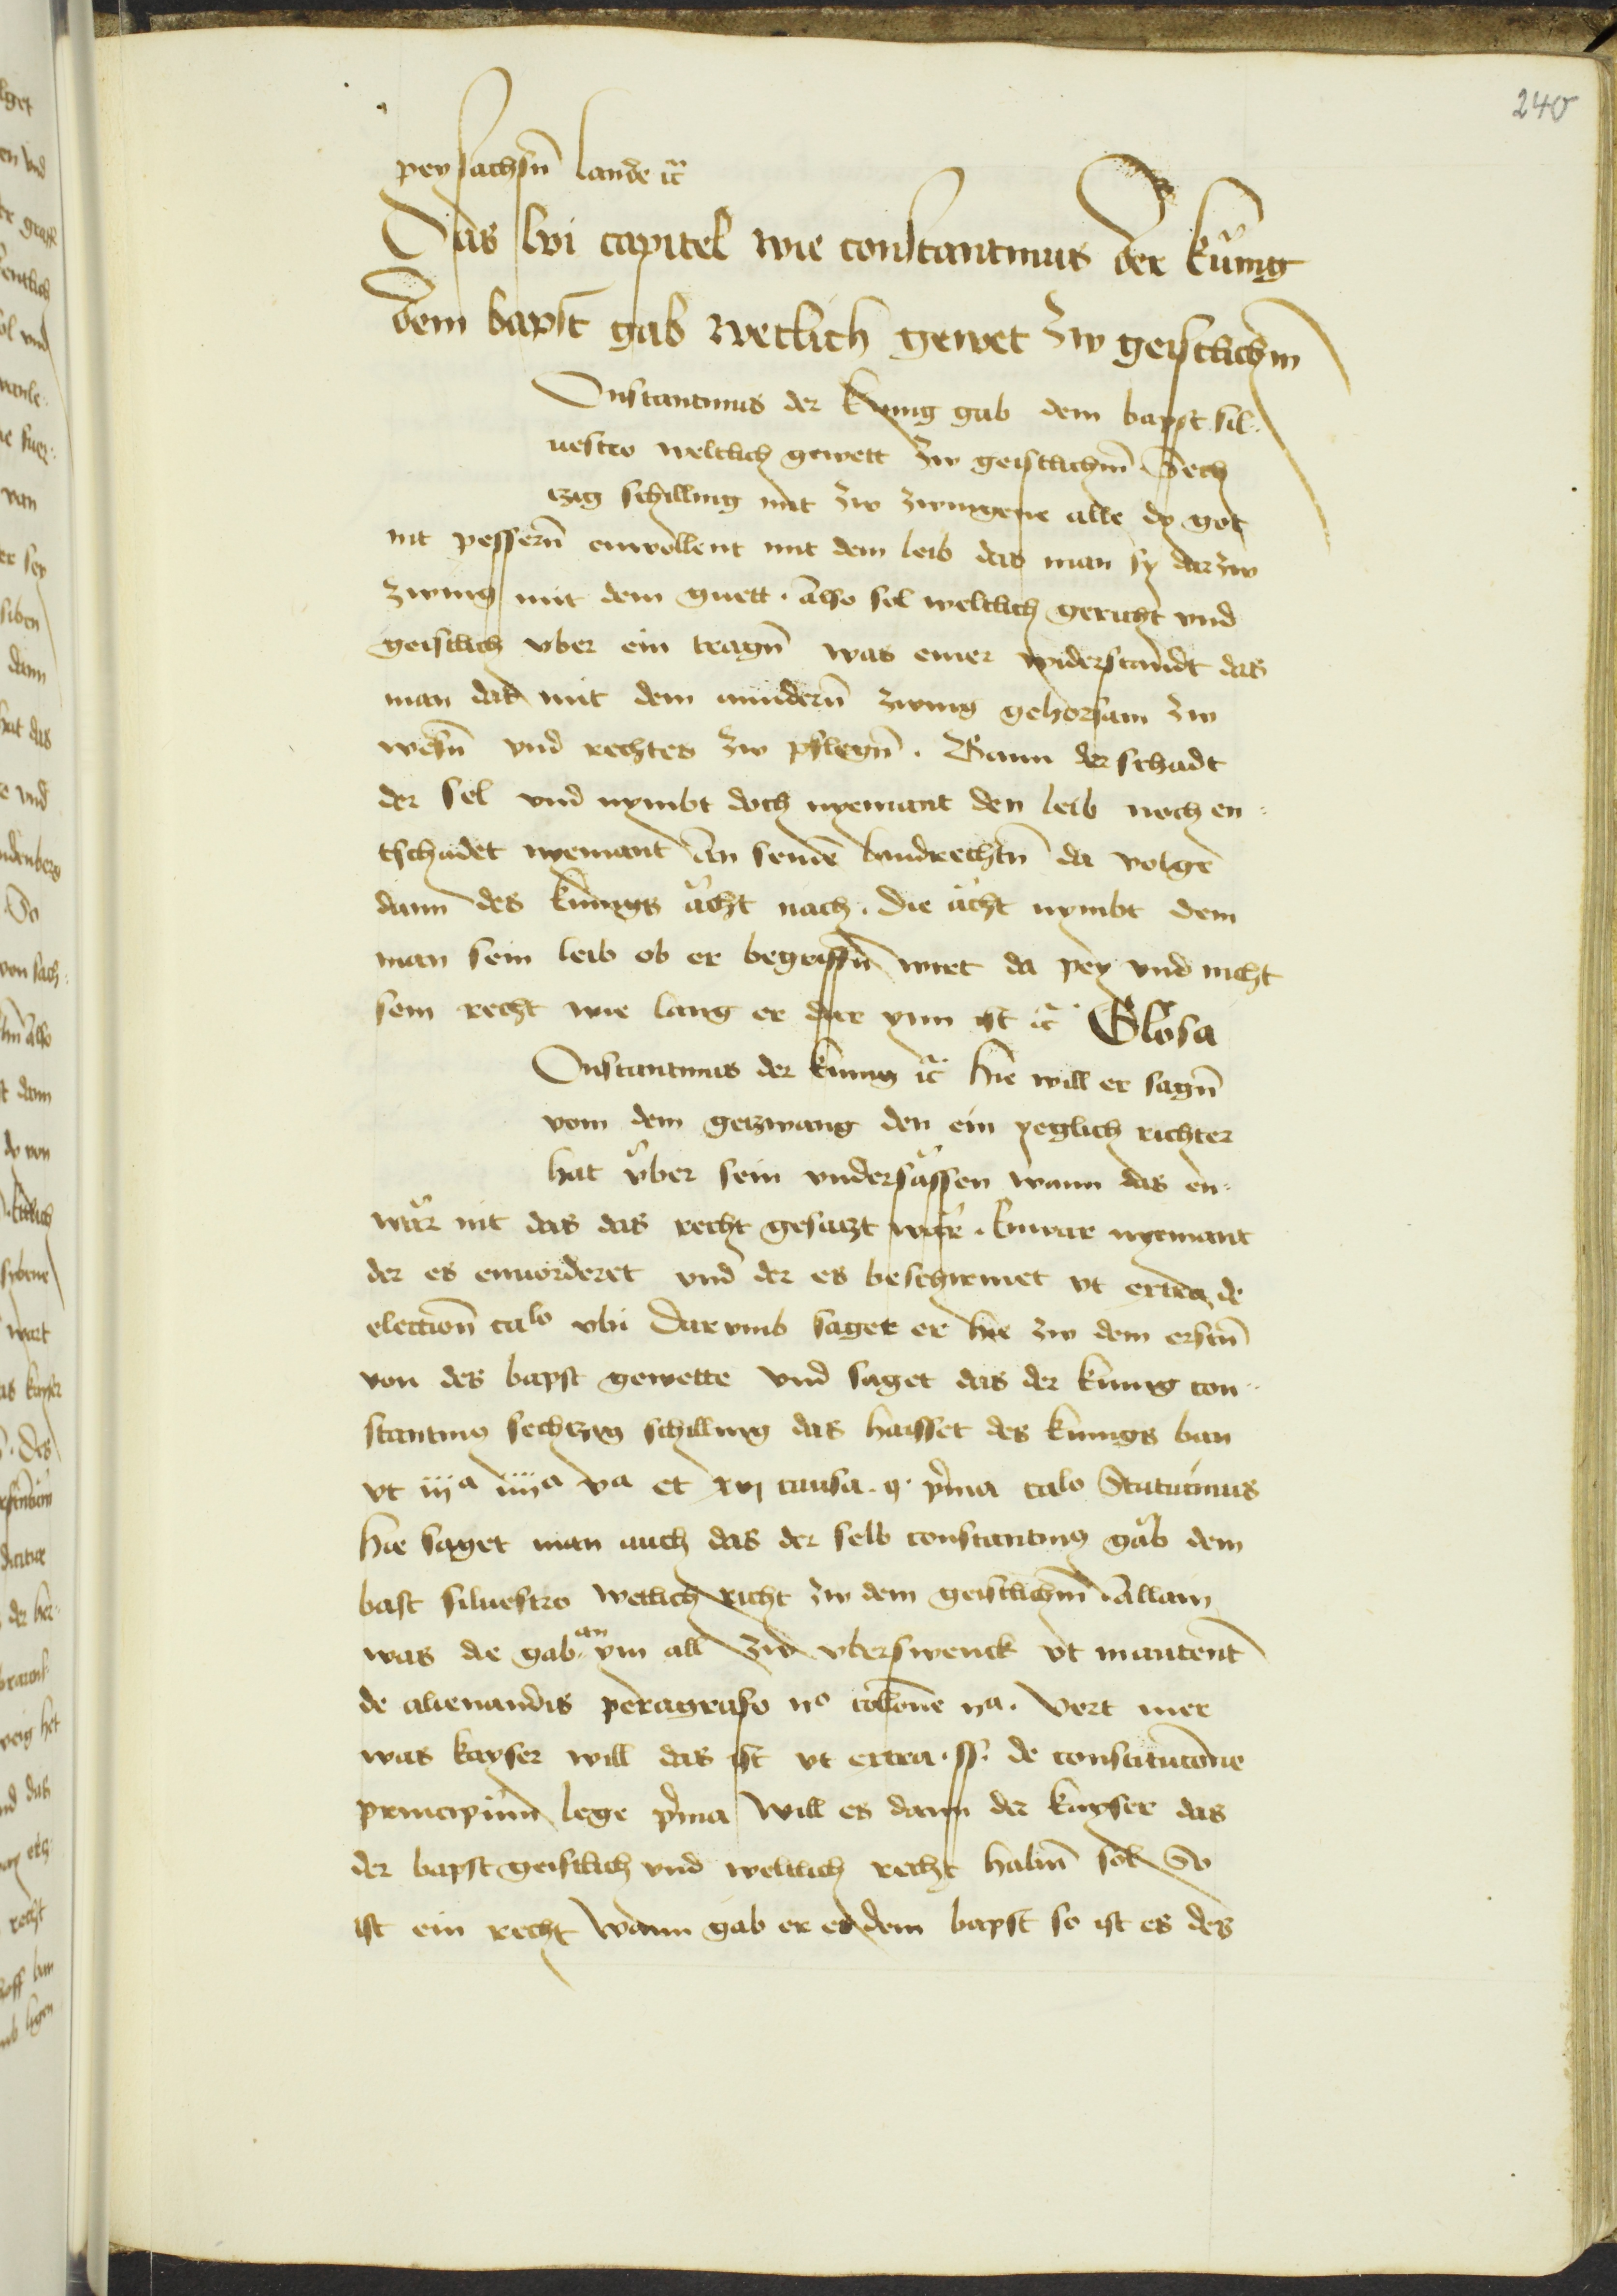 240
pey sachsn̄ lande ꝛc̄
Das lvi capitel wie constantinus der kůnig
dem bapst gab wertlich gewet zw geistlichm̄
Onstantinus der kunig gab dem bapst sil-
uestro weltlich gewett zw geistlichm̄ Sech
czig schilling mit zw zwingene alle dy got
nit pesserñ enwollent mit dem leib das man sy darzw
zwing mit dem guett. Also sol weltlich gericht vnd
geistlich vber ein tragn̄ was einer widerstandt das
man das mit dem anndern̄ zwing gehorsam zw
wesn̄ vnd rechtes zw pflegn̄. Bann der schadt
der sel vnd nymbt doch nyemant den leib noch en-
tschadet nyemant an seinē landrechtn̄ da volge
dann des kunigs ächt nach. die ächt nymbt dem
man sein leib ob er begriffn̄ wirt da pey vnd nicht
sein recht wie lang er dar ynn ist ꝛc̄ Glosa
Onstantinus der kunig ꝛc̄ hie will er sagn̄
vom dem geczwang den ein yeglich richter
hat vͤber sein vndersåssen wann das en-
wår nit das das recht gesaczt wår. Enwar nyemant
der es enuorderet vnd der es beschirmet vt extra de
election̄ calo vbi Dar vmb saget er hie zw dem erstn̄
von des bapst gewette vnd saget das der kunig con-
stantinꝰ sechczig schilling das haisset des kunigs ban
vt iija iiija va et xvj causa. q. pͥma calo Statuimus
hie saget man auch das der selb constantinꝰ gåb dem
bast siluestro wetlich richt zw dem geistlichm̄. Allain
was die gab an ym all zw vberswenck vt in autent̄
de alienandis peragrafo ijo colone ija. vort mer
was kayser will das ist vt extra. ff. de constitucōne
principium̄ lege pͥma Will es dann der kayser das
der bapst geistlich vnd weltlich recht habm̄ sol So
ist ein recht Wann gab er es dem bapst so ist es des